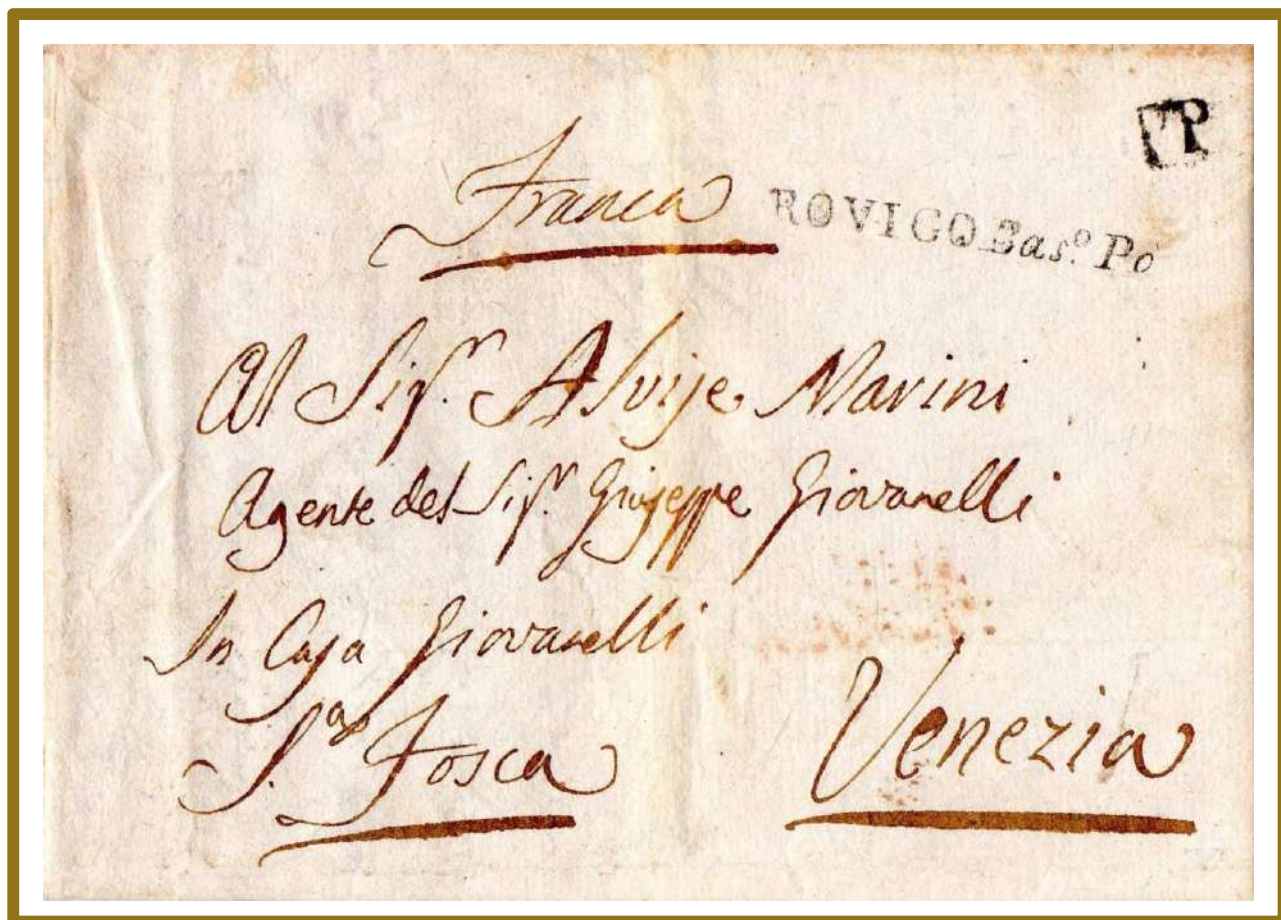 PP
Franca
ROVIGO Bas.º Po
Al Sig.r Alvije Marini
Agente del Sig.r Giuseppe Giovanelli
In Casa Giovanelli
S.ta Fosca
Venezia